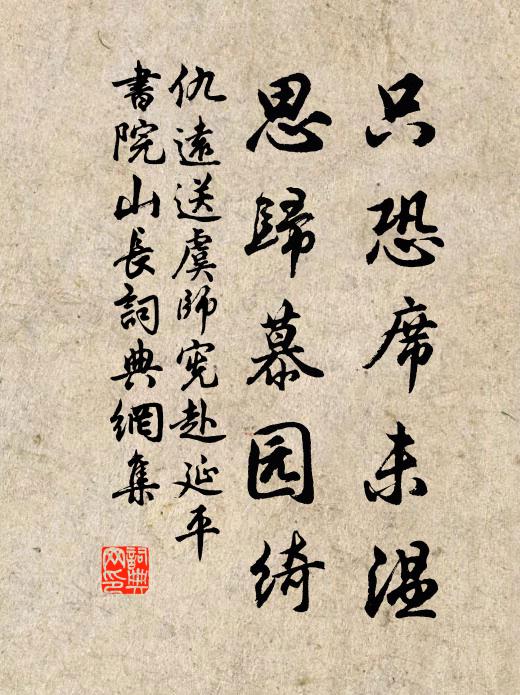 只恐席未温
思歸慕园绮
仇遠送虞師宪赴延平
書院山長詞典網集
詞典網印